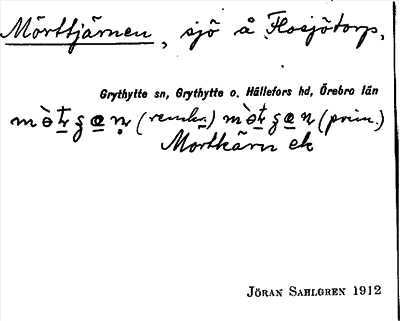 Mörttjärnen, sjö å Flosjötorp,
Grythytte sn, Grythytte o. Hällefors hd, Örebro län
(remkr.) (prim.)
Mörtkärn ek
JÖRAN SAHLGREN 1912